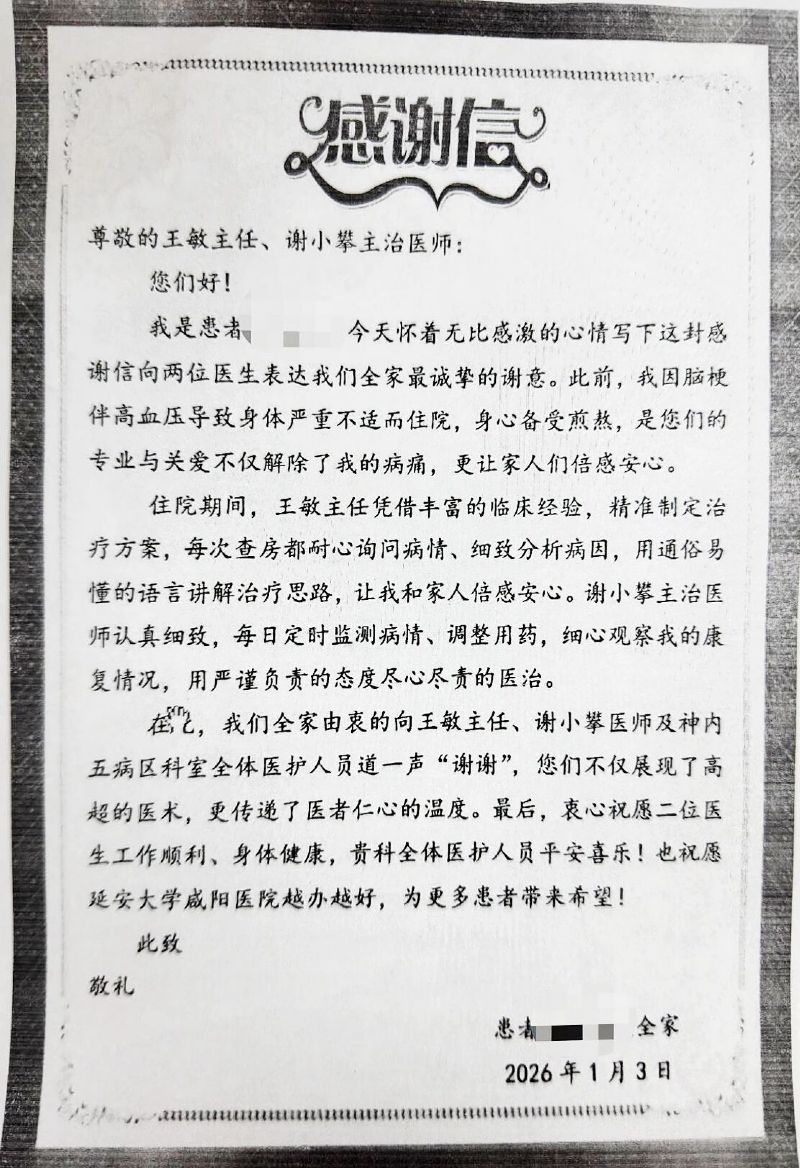 感谢信
尊敬的王敏主任、谢小攀主治医师：
您们好！
我是患者 今天怀着无比感激的心情写下这封感
谢信向两位医生表达我们全家最诚挚的谢意。此前，我因脑梗
伴高血压导致身体严重不适而住院，身心备受煎熬，是您们的
专业与关爱不仅解除了我的病痛，更让家人们倍感安心。
住院期间，王敏主任凭借丰富的临床经验，精准制定治
疗方案，每次查房都耐心询问病情、细致分析病因，用通俗易
懂的语言讲解治疗思路，让我和家人倍感安心。谢小攀主治医
师认真细致，每日定时监测病情、调整用药，细心观察我的康
复情况，用严谨负责的态度尽心尽责的医治。
在，我们全家由衷的向王敏主任、谢小攀医师及神内
五病区科室全体医护人员道一声“谢谢”，您们不仅展现了高
超的医术，更传递了医者仁心的温度。最后，衷心祝愿二位医
生工作顺利、身体健康，贵科全体医护人员平安喜乐！也祝愿
延安大学咸阳医院越办越好，为更多患者带来希望！
此致
敬礼
患者 全家
2026年1月3日